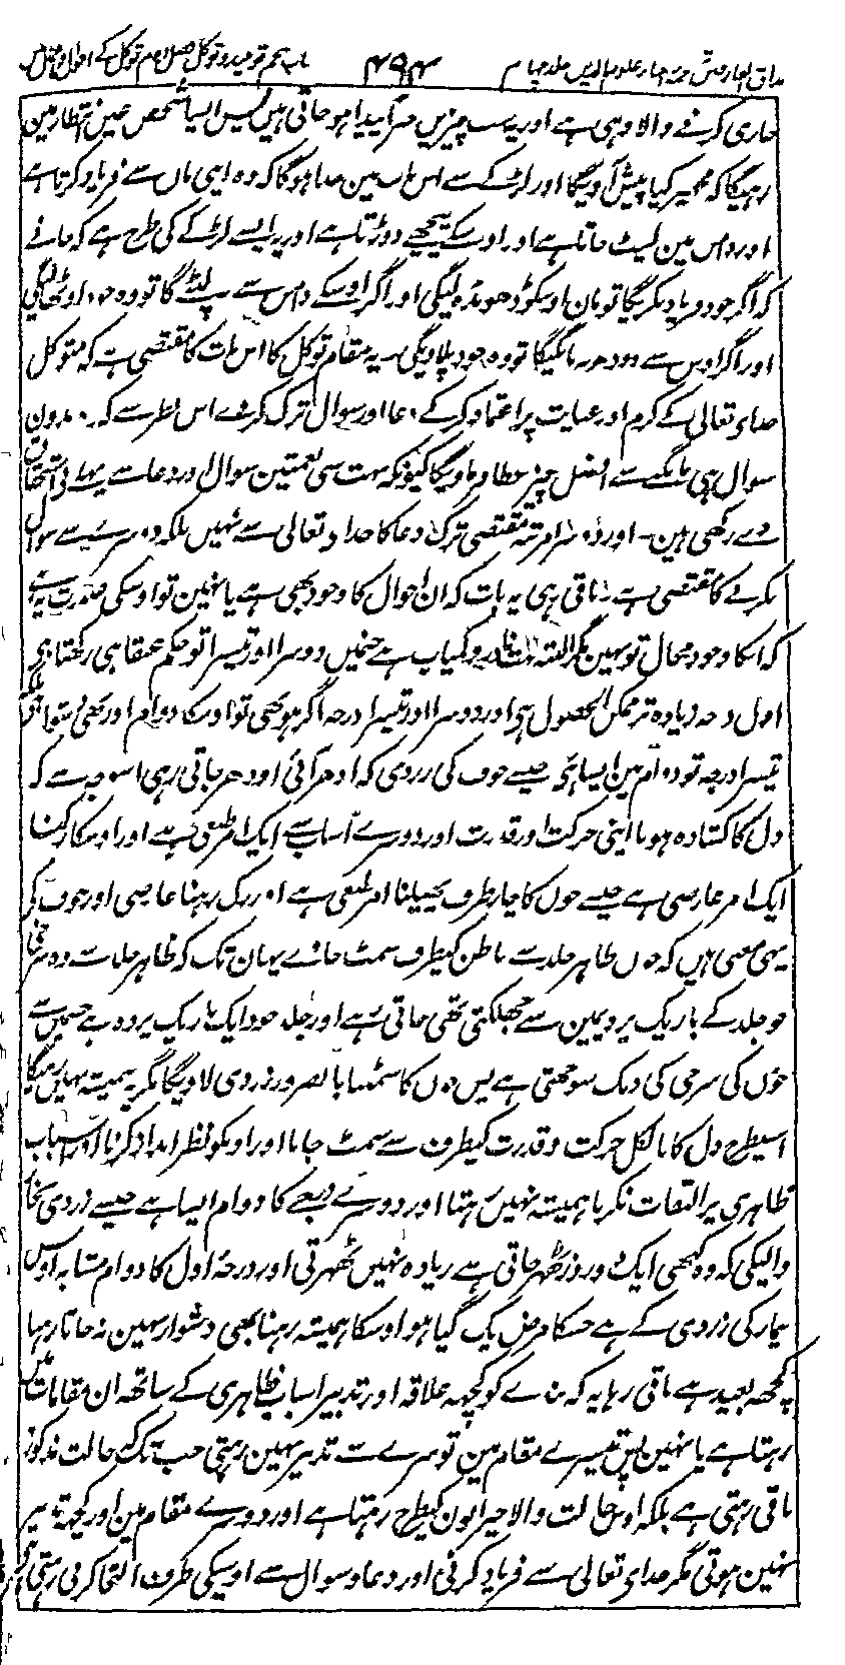 مذاق العارفین ترجمہ احیاء علوم الدین جلد چہارم ۴۹۴ باب پنجم توحید و توکل فصل دوم توکل کے احوال و اعمال میں
جاری کرنے والا وہی ہے اور یہ سب چیزیں مرآپیدا ہو جاتی ہیں پس ایسا شخص عین انتظار مین
رہیگا کہ مجھپر کیا پیش آویگا اور لڑکے سے اس باب مین جدا ہوگا کہ وہ اپنی ماں سے فریاد کرتا ہے
اور دامن مین لپٹ جاتا ہے اور اوسکے پیچھے دوڑتا ہے اور یہ ایسے لڑکے کی طرح ہے کہ جانے
کہ اگر خود فریاد نکریگا تو مان اوسکو ڈھونڈہ لیگی اور اگر اوسکے دامن سے نہ لپٹے گا تو وہ خود اوٹھا لیگی
اور اگر اوس سے دودھ نہ مانگیگا تو وہ خود پلاویگی یہ مقام توکل کا اس بات کا مقتضی ہے کہ متوکل
خداے تعالی کے کرم اور عنایت پر اعتماد کر کے دعا اور سوال ترک کر دے اس نظر سے کہ بدون
سوال ہی مانگے سے افضل چیز عطا فرماویگا کیونکہ بہت سی نعمتین سوال اور دعا سے پہلے بے استحقاق
دے رکھی ہین۔ اور دوسرا مرتبہ مقتضی ترک دعا کا خداے تعالی سے نہیں بلکہ دوسرے سے سوال
نکرنے کا مقتضی ہے باقی رہی یہ بات کہ ان احوال کا وجود بھی ہے یا نہین تو اوسکی صورت یہ ہے
کہ انکا وجود محال تو نہین مگر البتہ بہت نادر و کمیاب ہے جنمیں دوسرا اور تیسرا تو حکم عنقا ہی رکھتا ہی
اول درجہ زیادہ تر ممکن الحصول ہی اور دوسرا اور تیسرا درجہ اگر ہو بھی تو اوسکا دوام اور بھی دشوار ہی بلکہ
تیسرا درجہ تو دوام مین ایسا ہی جیسے خوف کی زردی کہ ادھر آئی اودھر جاتی رہی اسوجہ سے کہ
دل کا کشادہ ہونا اپنی حرکت اور قدرت اور دوسرے اسباب سے ایک امر طبعی ہے اور اوسکا رکنا
ایک امر عارضی ہے جیسے خون کا چارطرف پھیلنا امر طبعی ہے اور رک رہنا عارضی اور خوف کے
یہی معنی ہیں کہ خون ظاہر جلد سے باطن کیطرف سمٹ جاوے یہان تک کہ ظاہر جلد سے وہ سرخی
جو جلد کے باریک پردہمین سے جھلکتی تھی جاتی رہے اور جلد خود ایک باریک پردہ ہے جسمیں سے
خون کی سرخی کی دمک سوجھتی ہے پس خون کا سمٹنا بالضرور زردی لاویگا مگر یہ ہمیشہ نہیں رہیگا
اسیطرح دل کا بالکل حرکت و قدرت کیطرف سے سمٹ جانا اور اونکو نظر انداز کرنا اور اسباب
ظاہری پر التفات نکرنا ہمیشہ نہیں رہتا اور دوسرے درجے کا دوام ایسا ہے جیسے زردی بخار
والیکی کہ وہ کبھی ایک دو روز ٹھہر جاتی ہے زیادہ نہیں ٹھہرتی اور درجۂ اول کا دوام مشابہ اوس
بیمار کی زردی کے ہے جسکا مرض پک گیا ہو اوسکا ہمیشہ رہنا بھی دشوار نہین نہ جاتا رہنا
کچھہ بعید ہے باقی رہا یہ کہ بندے کو کچھہ علاقہ اور تدبیر اسباب ظاہری کے ساتھہ ان مقامات میں
رہتا ہے یا نہین پس تیسرے مقام مین تو سرے سے تدبیر نہین رہتی جب تک کہ حالت مذکورہ
باقی رہتی ہے بلکہ اوس حالت والا حیرانون کیطرح رہتا ہے اور دوسرے مقام مین اور کچھہ تدبیر
نہین ہوتی مگر خداے تعالی سے فریاد کرنی اور دعا و سوال سے اوسیکی طرف التجا کرنی رہتی ہی